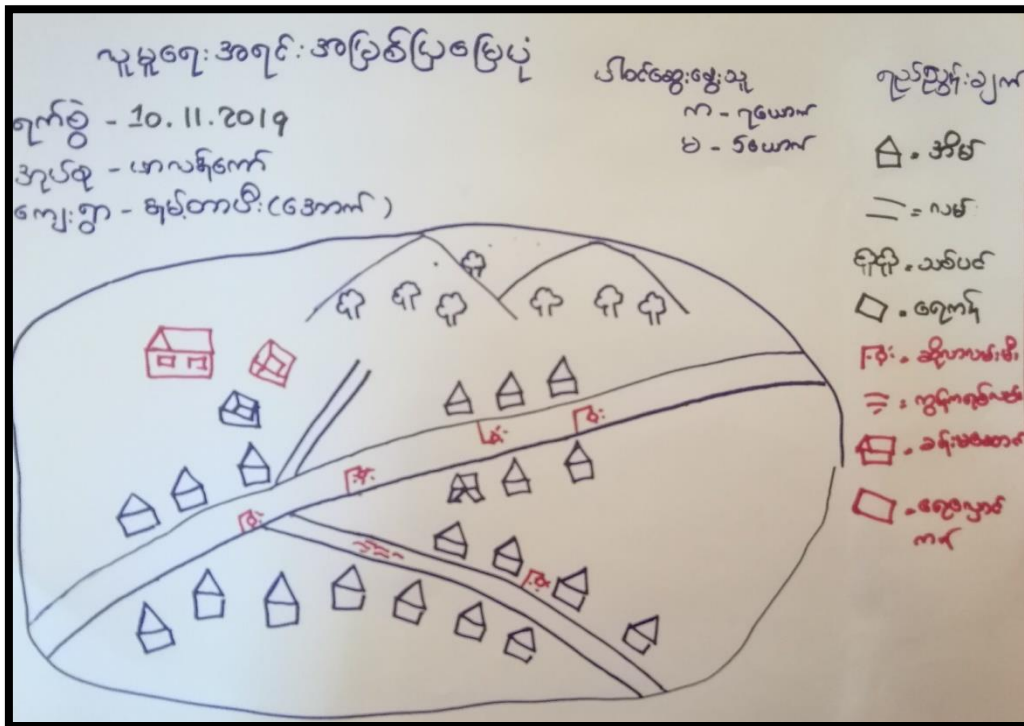 လူမှုရေးအရင်းအမြစ်ပြမြေပုံ
ရက်စွဲ - 10.11.2019
အုပ်စု - ဟာလန်ကော်
ကျေးရွာ - ချမ့်တာပီး (အောက်)
ပါဝင်ဆွေးနွေးသူ
က - ၇ယောက်
မ - ၆ယောက်
ရည်ညွှန်းချက်
= အိမ်
= လမ်း
= သစ်ပင်
= ရေကန်
= ဆိုလာလမ်းမီး
= ကွန်ကရစ်လမ်း
= ခန်းမဆောင်
= ရေလှောင်
ကန်